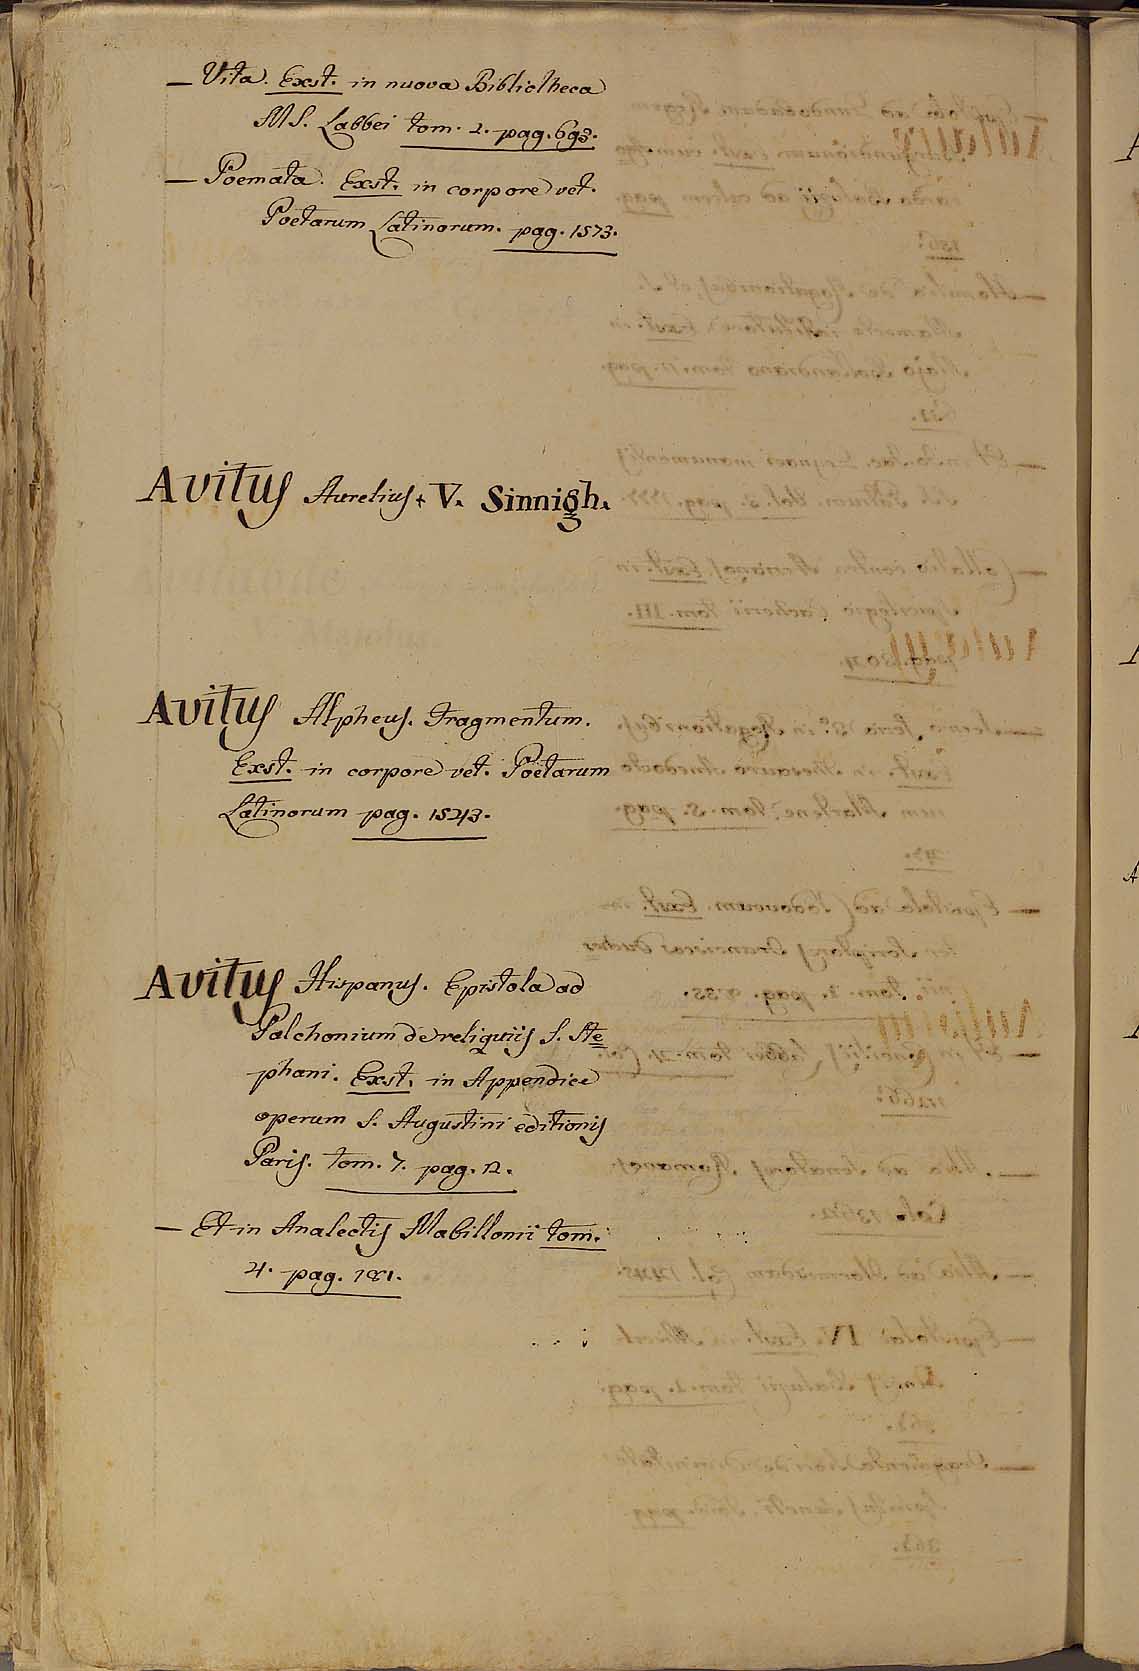 — Vita. Exst. in nuova Bibliotheca
MS. Labbei tom. 2. pag. 693.
— Poemata. Exst. in corpore vet.
Poetarum Latinorum. pag. 1573.
Avitus Aurelius. V. Sinnigh.
Avitus Alpheus. Fragmentum.
Exst. in corpore vet. Poetarum
Latinorum pag. 1543.
Avitus Hispanus. Epistola ad
Palchonium de reliquiis S. Ste=
phani. Exst. in Appendice
operum S. Augustini editionis
Paris. tom. 7. pag. 12.
— Et in Analectis Mabillonii tom.
4. pag. 181.